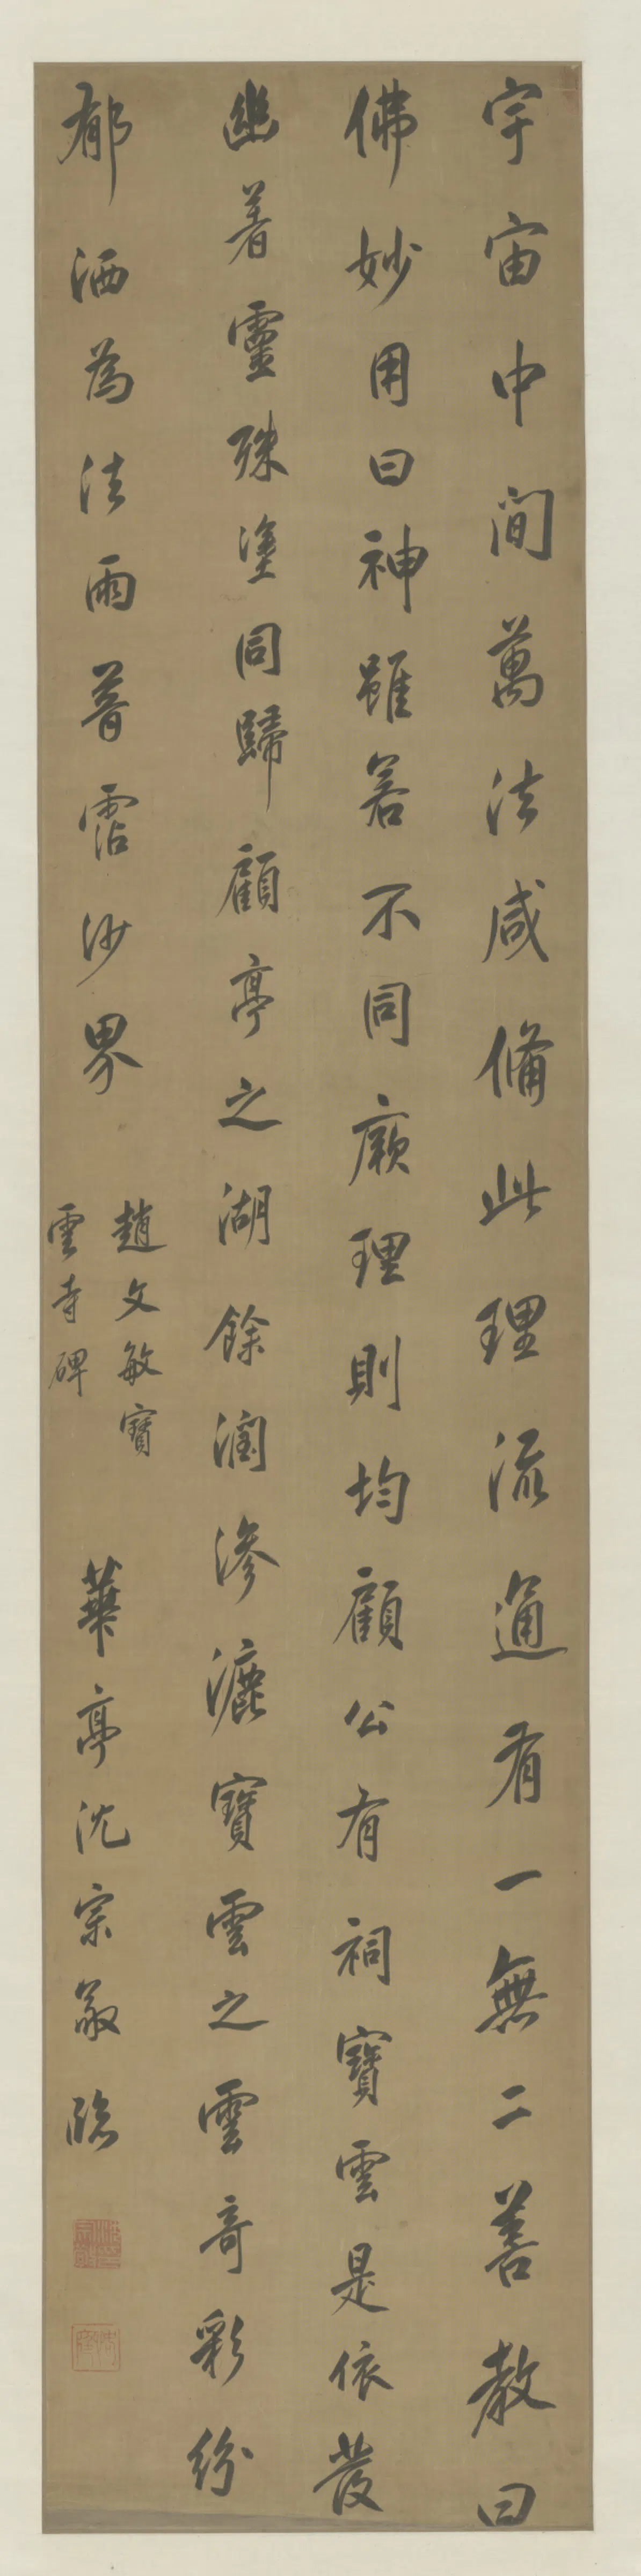 宇宙中間萬法咸俻此理流通有一無二善教曰
佛妙用曰神雖若不同厥理則均顧公有祠寶雲是依發
幽著靈殊塗同歸顧亭之湖餘潤滲漉寶雲之雲奇彩紛
郁洒為法雨普霑沙界
趙文敏寶
雲寺碑
華亭沈宗敬臨